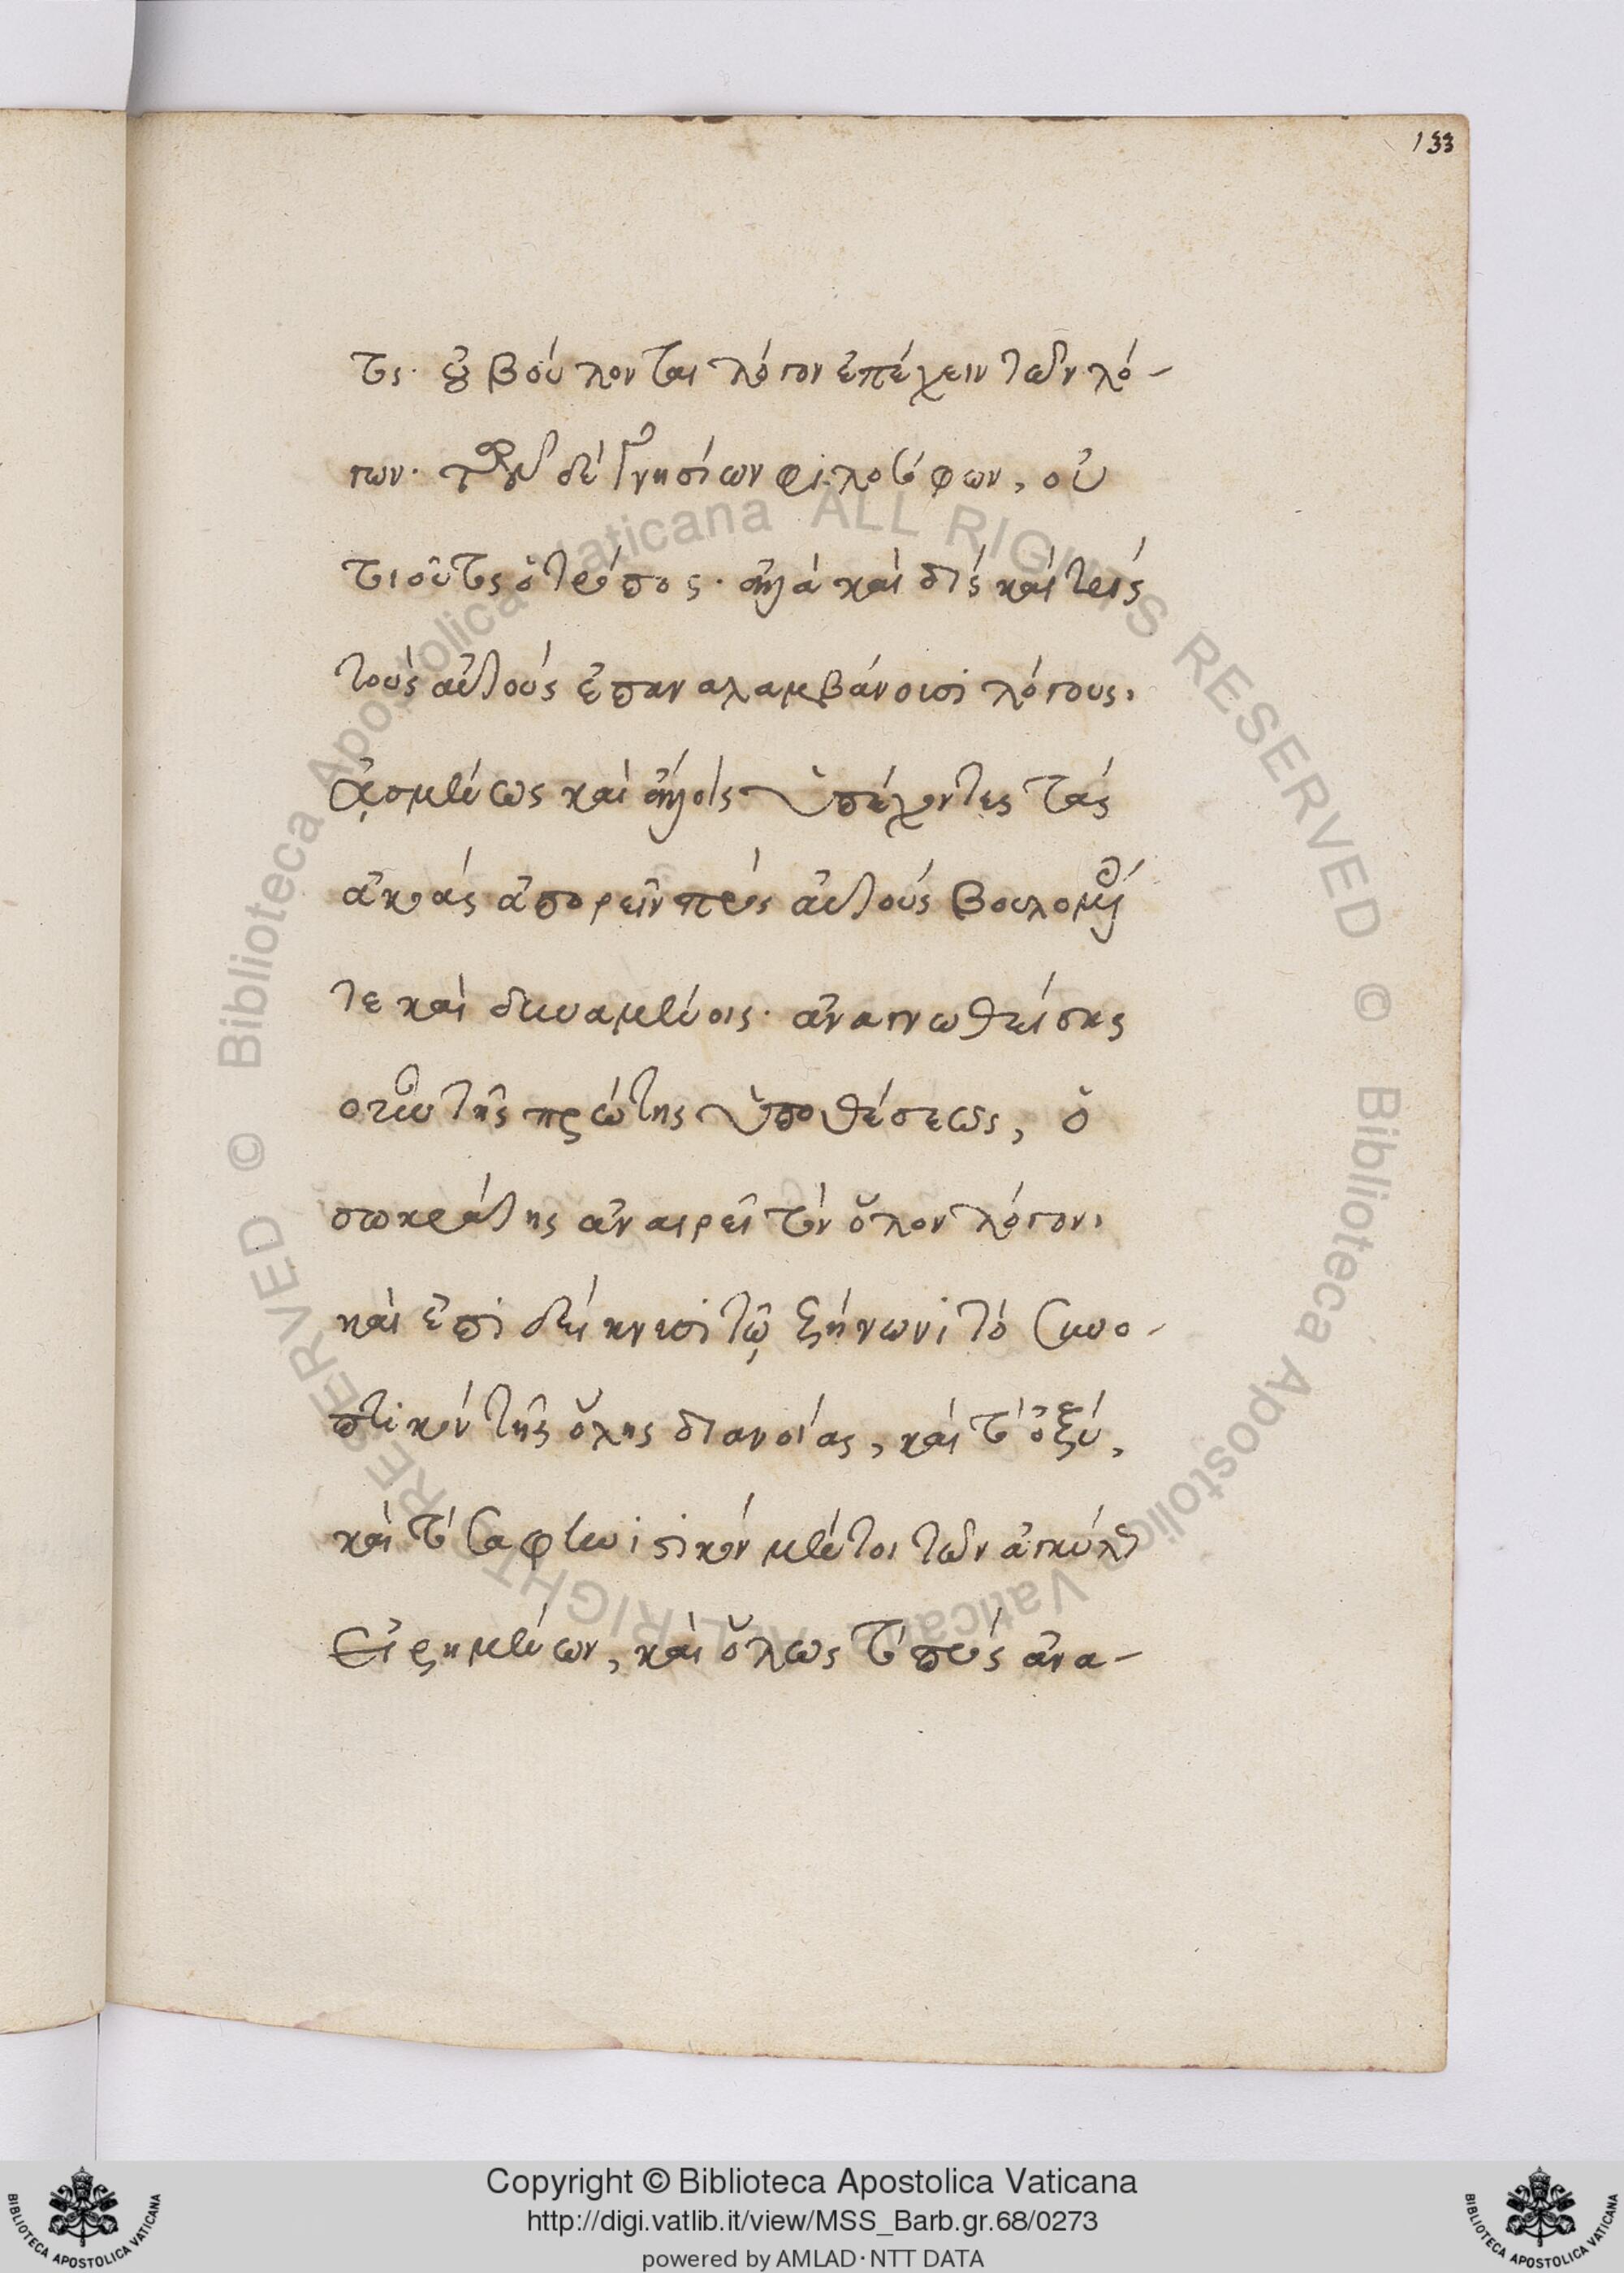 133
τος· οὐ βούλονται λόγον ἐπέχειν τῶν λό-
γων· τῶν δὲ γνησίων φιλοσόφων, οὐ
τοιοῦτος ὁ τρόπος· ἀλλὰ καὶ δὶς καὶ τρὶς
τοὺς αὐτοὺς ἐπαναλαμβάνουσι λόγους,
ἀσμένως καὶ ἄλλοις ὑπέχοντες τὰς
ἀκοὰς ἀπορεῖν πρὸς αὐτοὺς βουλομένοις
τε καὶ δυναμένοις· ἀναγνωσθείσης
οὖν τῆς πρώτης ὑποθέσεως, ὁ
σωκράτης ἀναιρεῖ τὸν ὅλον λόγον,
καὶ ἐπιδείκνυσι τῷ ζήνωνι τὸ συνο-
πτικὸν τῆς ὅλης διανοίας, καὶ τὸ ὀξύ,
καὶ τὸ σαφηνιστικὸν μέντοι τῶν ἀγκύλως
εἰρημένων, καὶ ὅλως τὸ πρὸς ἀνα-
Copyright © Biblioteca Apostolica Vaticana
http://digi.vatlib.it/view/MSS_Barb.gr.68/0273
powered by AMLAD·NTT DATA
BIBLIOTECA APOSTOLICA VATICANA
BIBLIOTECA APOSTOLICA VATICANA
© Biblioteca Apostolica Vaticana ALL RIGHTS RESERVED © Biblioteca Apostolica Vaticana ALL RIGHTS RESERVED